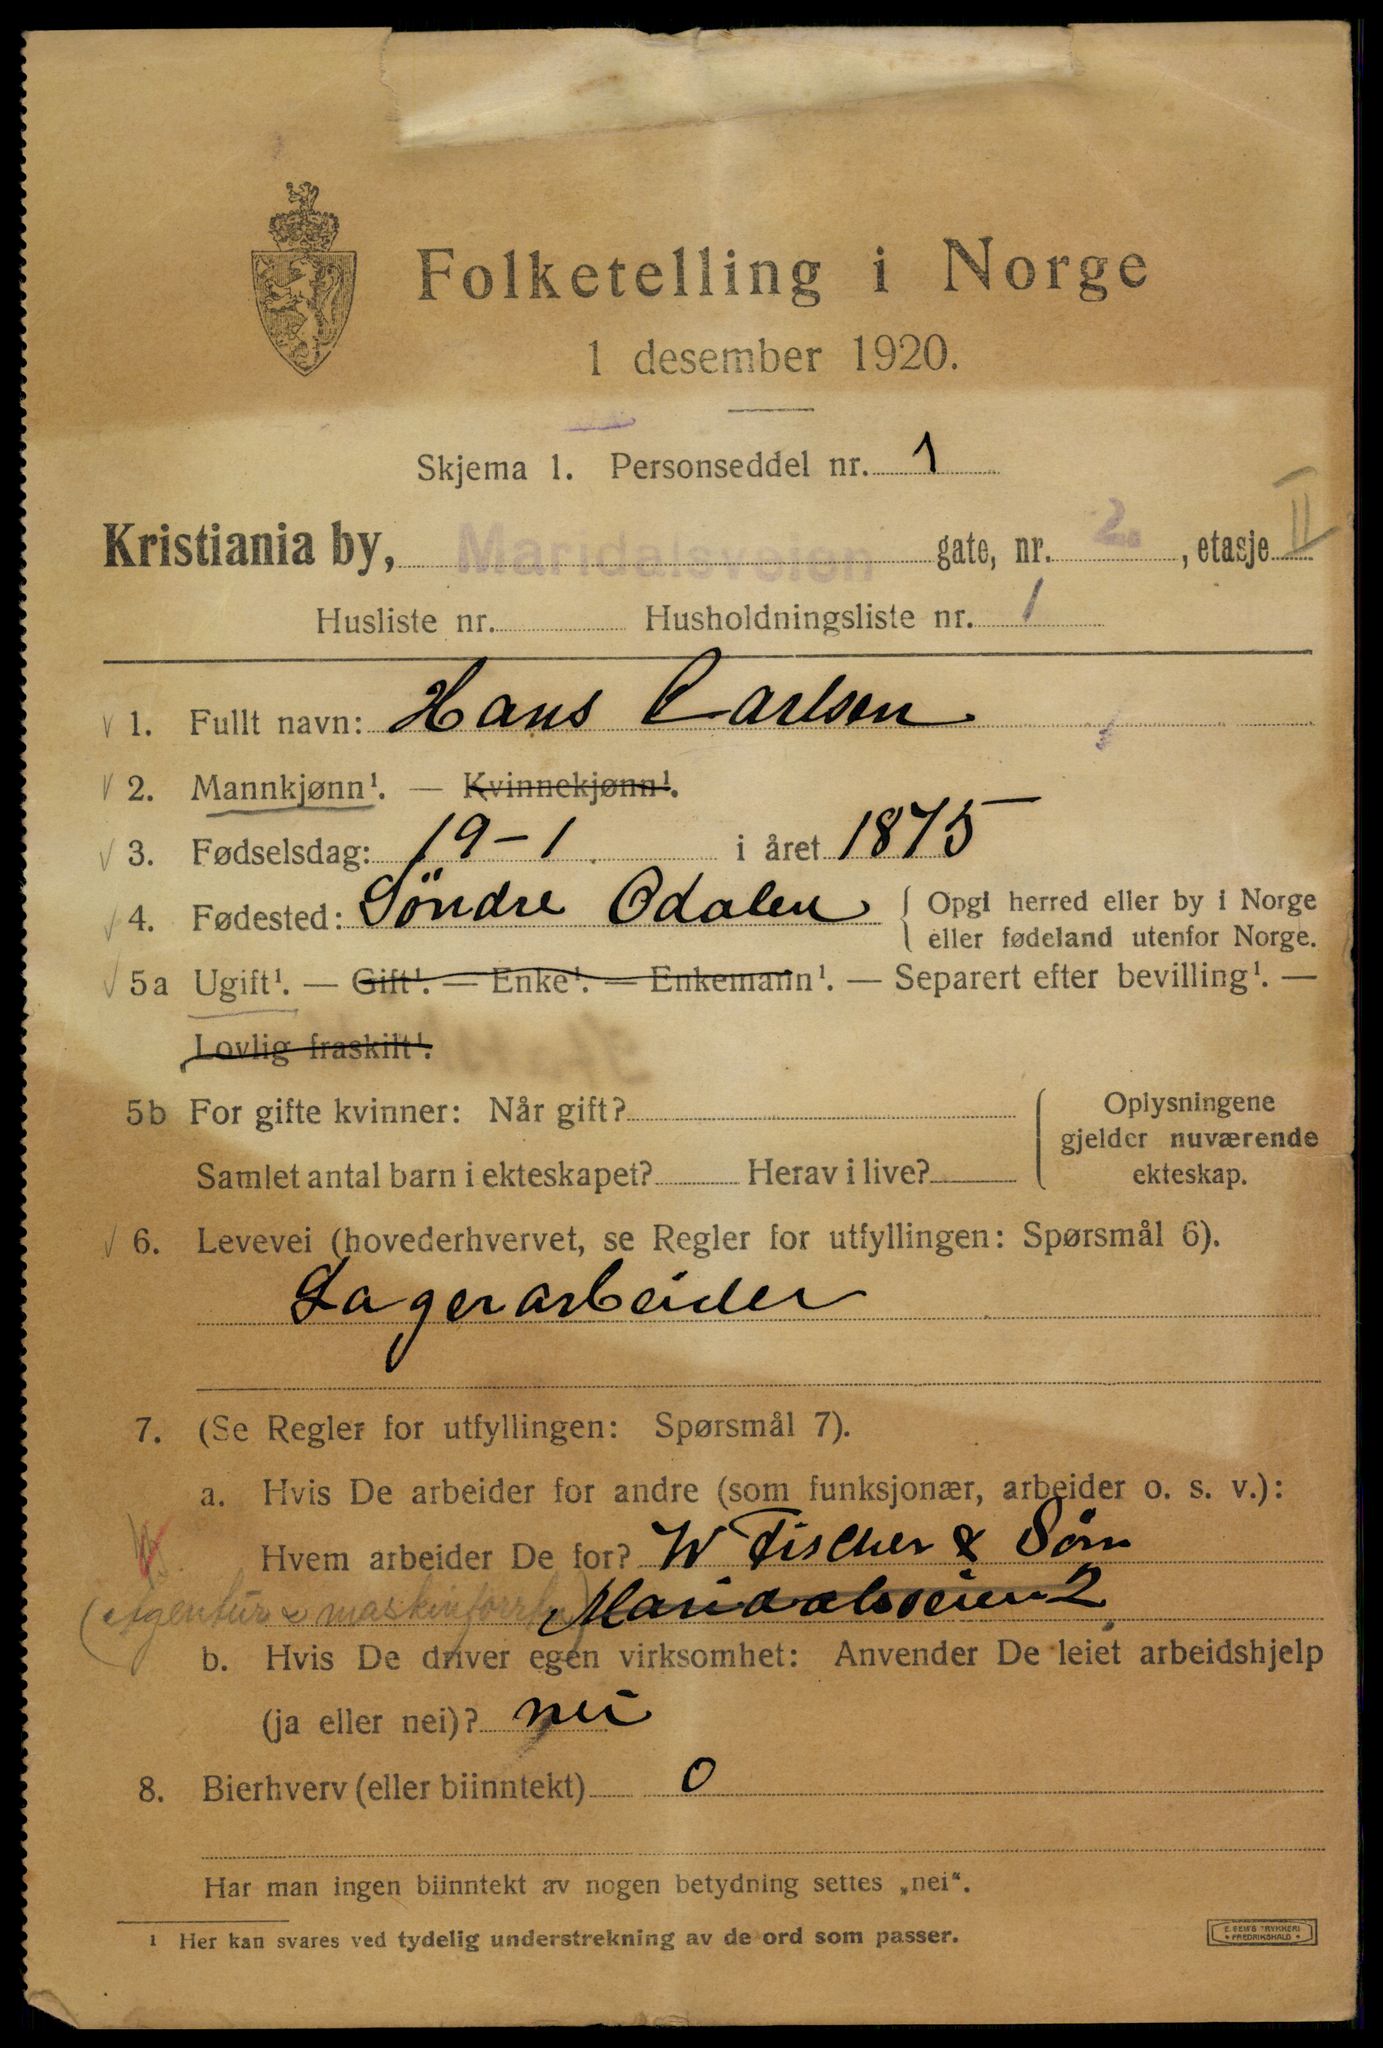 Folketelling i Norge
1 desember 1920.
Skjema 1. Personseddel nr. 1
Kristiania by, Maridalsveien gate, nr. 2, etasje II
Husliste nr. Husholdningsliste nr. 1
1. Fullt navn: Hans Carlsen
2. Mannkjønn¹. — Kvinnekjønn¹.
3. Fødselsdag: 19-1 i året 1875
4. Fødested: Söndre Odalen { Opgi herred eller by i Norge
eller fødeland utenfor Norge.
5a Ugift¹. — Gift¹. — Enke¹. — Enkemann¹. — Separert efter bevilling¹. —
Lovlig fraskilt¹.
5b For gifte kvinner: Når gift? { Oplysningene
gjelder nuværende
Samlet antal barn i ekteskapet? Herav i live? ekteskap.
6. Levevei (hovederhvervet, se Regler for utfyllingen: Spørsmål 6).
Lagerarbeider
7. (Se Regler for utfyllingen: Spørsmål 7).
a. Hvis De arbeider for andre (som funksjonær, arbeider o. s. v.):
Hvem arbeider De for? W Fischer & Søn
(Agentur & maskinforrtn) Maridalsveien 2
b. Hvis De driver egen virksomhet: Anvender De leiet arbeidshjelp
(ja eller nei)? nei
8. Bierhverv (eller biinntekt) 0
Har man ingen biinntekt av nogen betydning settes „nei“.
¹ Her kan svares ved tydelig understrekning av de ord som passer.
FREDRIKSHALD